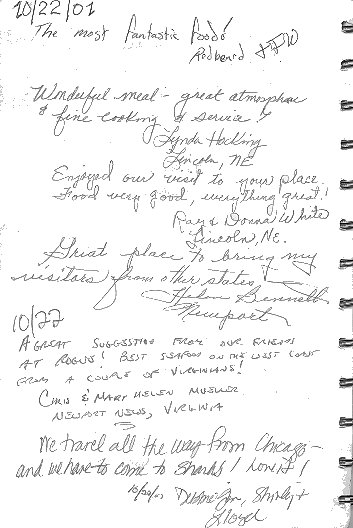 10/22/01
The most fantastic food!
Redbeard
Wonderful meal - great atmosphere
& fine cooking & service!
Lynda Hocking
Lincoln, NE
Enjoyed our visit to your place.
Food very good, everything great!
Ray & Donna White
Lincoln, NE.
Great place to bring my
visitors from other states!
Helen Bennett
Newport
10/22
A GREAT SUGGESTION FROM OUR FRIENDS
AT ROGUE! BEST SEAFOOD ON THE WEST COAST
FROM A COUPLE OF VIRGINIANS!
CHRIS & MARY HELEN MUELLER
NEWPORT NEWS, VIRGINIA
We travel all the way from Chicago -
and we have to come to Sharks! Love it!
Shirley &
Lloyd